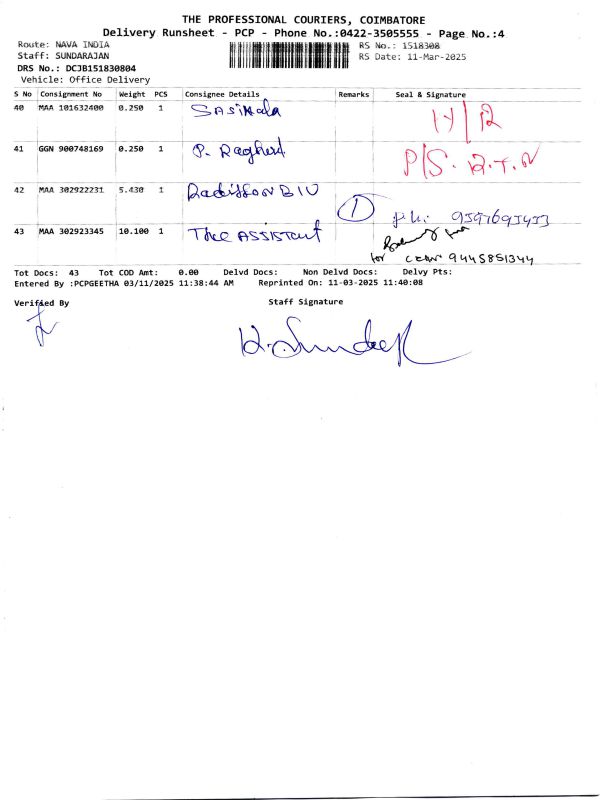 THE PROFESSIONAL COURIERS, COIMBATORE
Delivery Runsheet - PCP - Phone No.:0422-3505555 - Page No.:4
Route: NAVA INDIA
RS No.: 1518308
Staff: SUNDARAJAN
RS Date: 11-Mar-2025
DRS No.: DCJB151830804
Vehicle: Office Delivery
S No Consignment No Weight PCS Consignee Details Remarks Seal & Signature
40 MAA 101632400 0.250 1 SASIKala
41 GGN 900748169 0.250 1 P.
P/S. R.T.N
42 MAA 302922231 5.430 1
1
43 MAA 302923345 10.100 1 The ASSISTant
for 9445851344
Tot Docs: 43 Tot COD Amt: 0.00 Delvd Docs: Non Delvd Docs: Delvy Pts:
Entered By :PCPGEETHA 03/11/2025 11:38:44 AM Reprinted On: 11-03-2025 11:40:08
Verified By Staff Signature